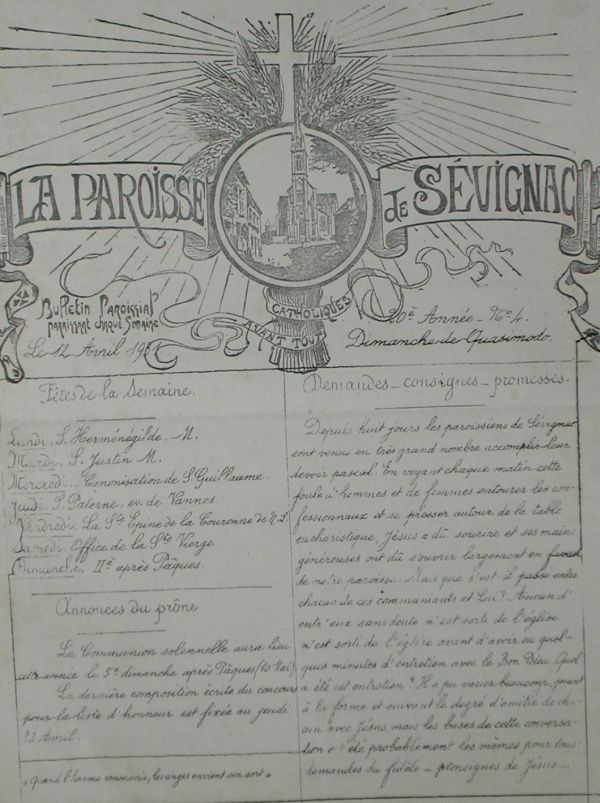 LA PAROISSE de SÉVIGNAC
CATHOLIQUES
AVANT TOUT
Bulletin Paroissial
paraissant chaque Semaine
Le 12 Avril 1931
20e Année - No 4.
Dimanche de Quasimodo.
Fêtes de la Semaine.
Lundi. S. Herménégilde. M.
Mardi. S. Justin M.
Mercredi. Canonisation de S. Guillaume.
Jeudi. S. Paterne, ev. de Vannes.
Vendredi. La Ste Epine de la Couronne de N. S.
Samedi. Office de la Ste Vierge.
Dimanche. IIe après Pâques.
Annonces du prône
La Communion solennelle aura lieu
cette année le 5e dimanche après Pâques (10 Mai).
La dernière composition écrite du concours
pour la liste d'honneur est fixée au jeudi
Avril.
« Quand l'homme communie, les anges envient son sort »
Demandes - consignes - promesses.
Depuis huit jours les paroissiens de Sévignac
sont venus en très grand nombre accomplir leur
devoir pascal. En voyant chaque matin cette
foule d'hommes et de femmes entourer les con-
fessionnaux et se presser autour de la table
eucharistique, Jésus a dû sourire et ses mains
généreuses ont dû s'ouvrir largement en faveur
de notre paroisse. Mais que s'est-il passé entre
chacun de ces communiants et Lui? Aucun d'
entr'eux sans doute n'est sorti de l'église
n'est sorti de l'église avant d'avoir eu quel-
ques minutes d'entretien avec le Bon Dieu. Quel
a été cet entretien? Il a pu varier beaucoup, quant
à la forme et suivant le degré d'amitié de cha-
cun avec Jésus, mais les bases de cette conversa-
tion ont été probablement les mêmes pour tous:
demandes du fidèle - consignes de Jésus -